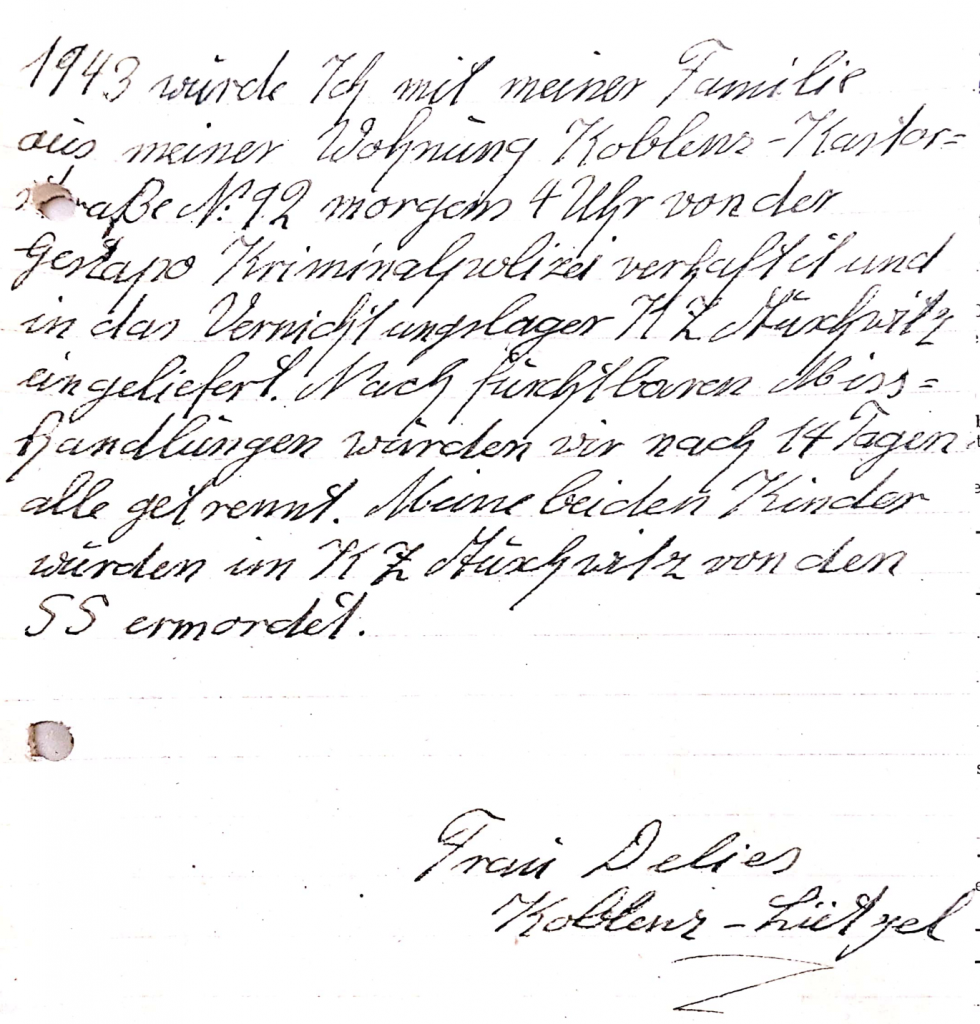 1943 wurde Ich mit meiner Familie
aus meiner Wohnung Koblenz-Kastor=
straße No 92 morgens 4 Uhr von der
Gestapo Kriminalpolizei verhaftet und
in das Vernichtungslager KZ Auschwitz
eingeliefert. Nach furchtbaren Miss=
handlungen wurden wir nach 14 Tagen
alle getrennt. Meine beiden Kinder
wurden im KZ Auschwitz von den
SS ermordet.
Frau Delies
Koblenz-Lützel